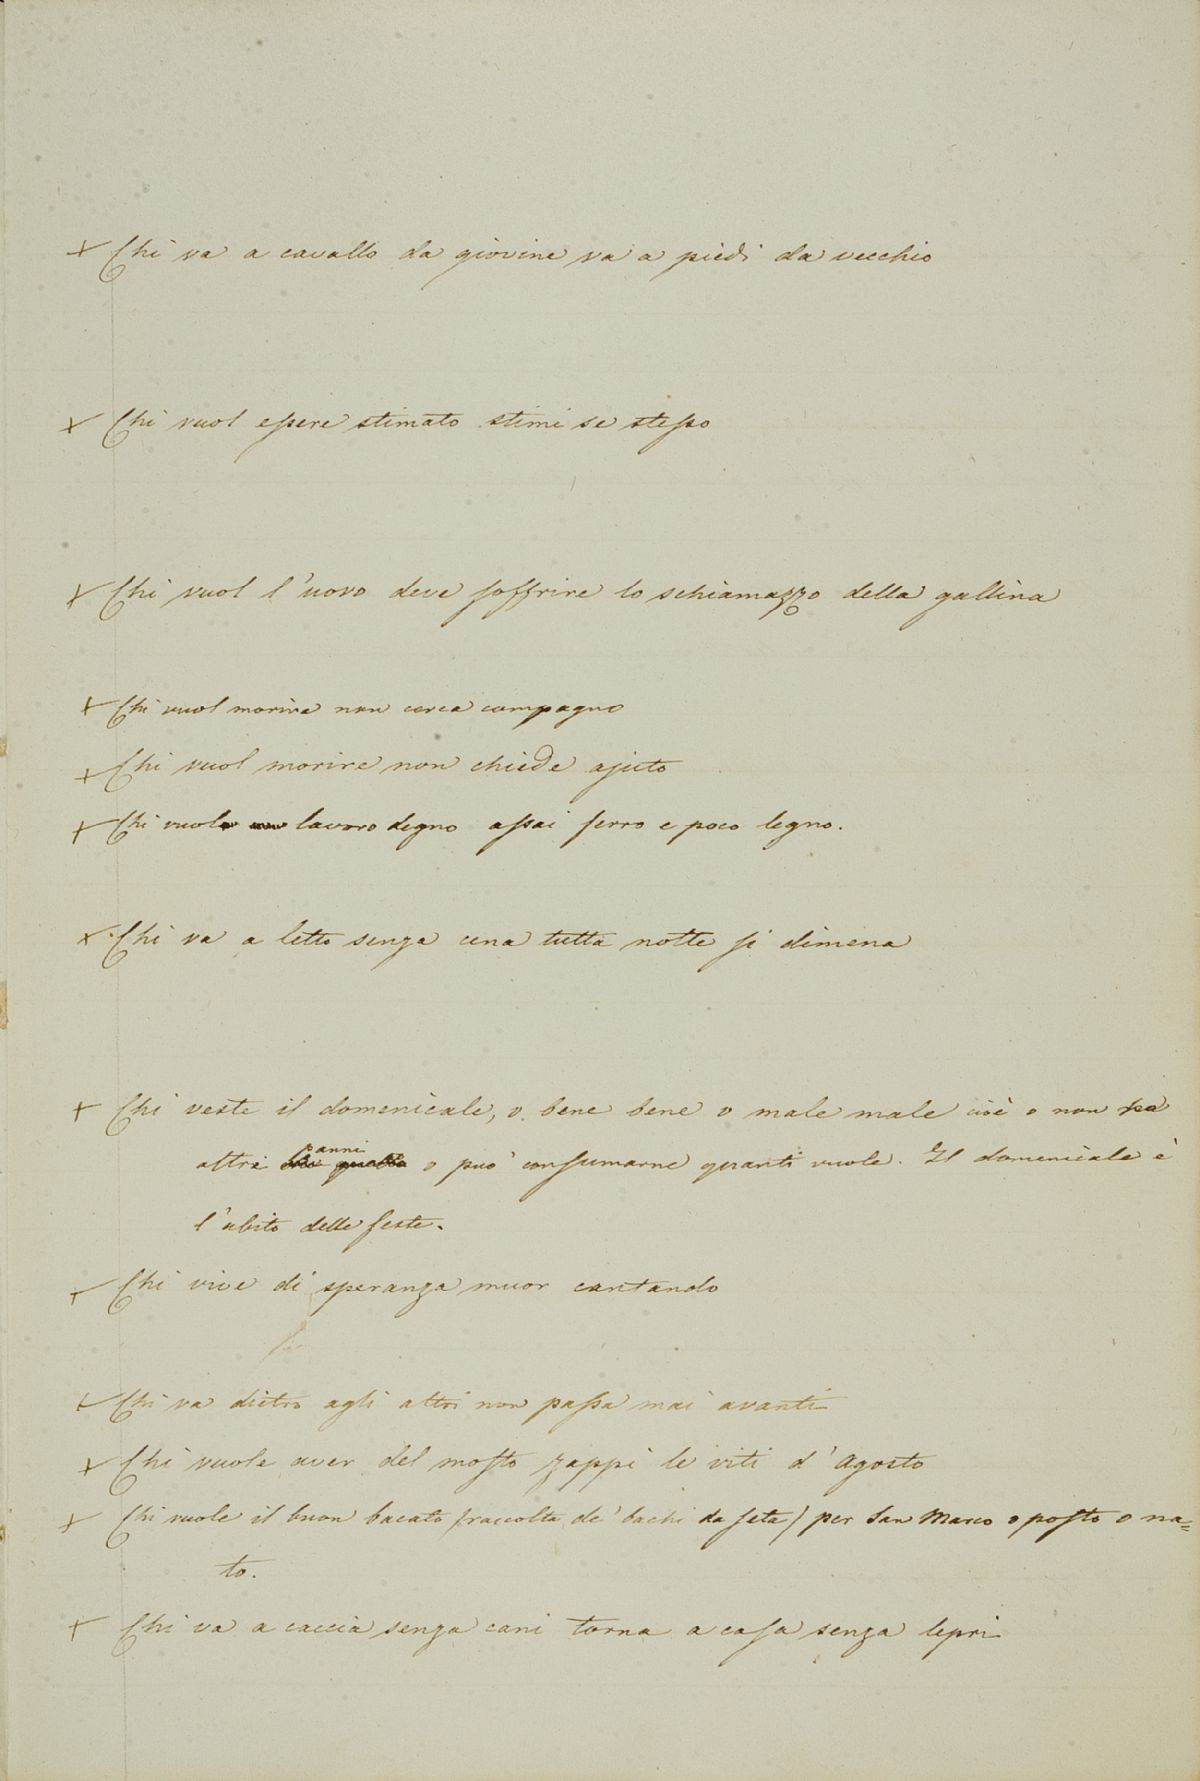 + Chi va a cavallo da giovine va a piedi da vecchio
+ Chi vuol essere stimato stimi se stesso
+ Chi vuol l'uovo deve soffrire lo schiamazzo della gallina
+ Chi vuol morire non cerca compagno
+ Chi vuol morire non chiede ajuto
+ Chi vuol lavoro degno assai ferro e poco legno.
+ Chi va a letto senza cena tutta notte si dimena
+ Chi veste il domenicale, o bene bene o male male cioè o non ha
altri panni o può consumarne quanti vuole. Il domenicale è
l'abito delle feste.
+ Chi vive di speranza muor cantando
+ Chi va dietro agli altri non passa mai avanti
+ Chi vuole aver del mosto zappi le viti d'Agosto
+ Chi vuole il buon bacato (raccolta de' bachi da seta) per San Marco o posto o na=
to.
+ Chi va a caccia senza cani torna a casa senza lepri